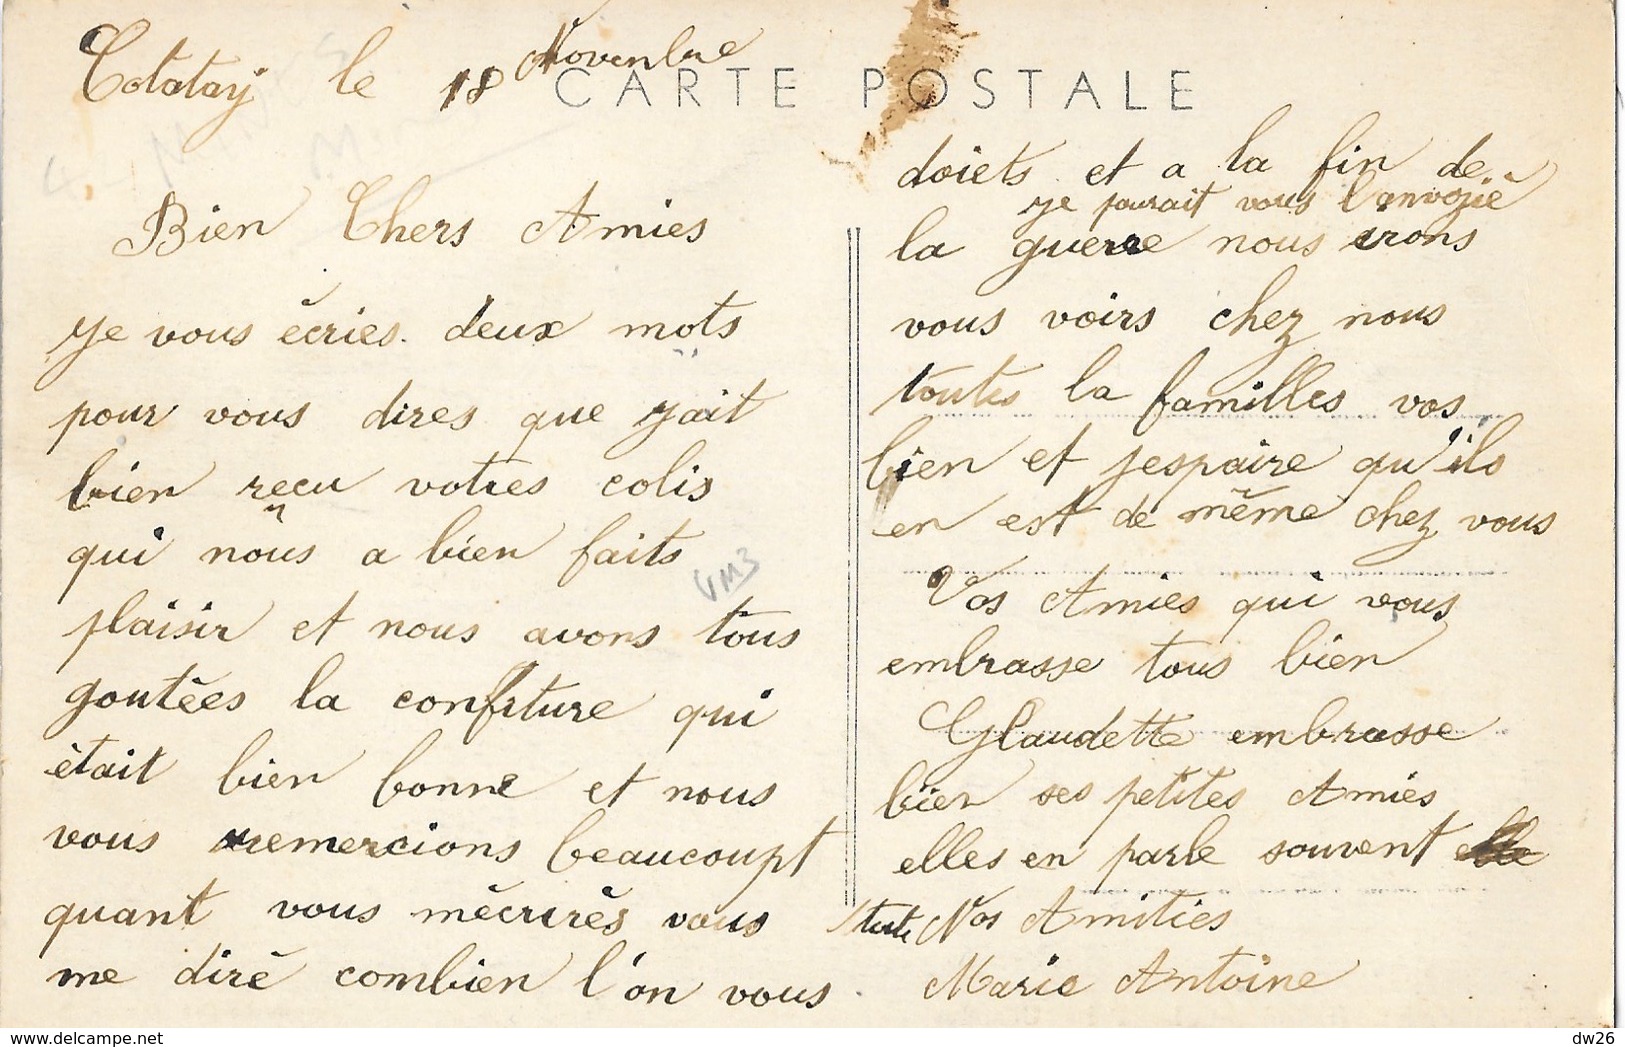 Totatay le 18 Novembre
CARTE POSTALE
Bien Chers Amies
Je vous écries deux mots
pour vous dires que jait
bien reçu votres colis
qui nous a bien faits
plaisir et nous avons tous
goutées la confiture qui
était bien bonne et nous
vous remercions beaucoupt
quant vous mécrirés vous
me diré combien l'on vous
doiets et a la fin de
je pourait vous l'envoyiè
la guerre nous irons
vous voirs chez nous
toutes la familles vos
bien et jespaire qu'ils
en est de même chez vous
Vos Amies qui vous
embrasse tous bien
Glaudette embrasse
bien ses petites Amies
elles en parle souvent elle
toute Nos Amities
Marie Antoine
VM3
dw26